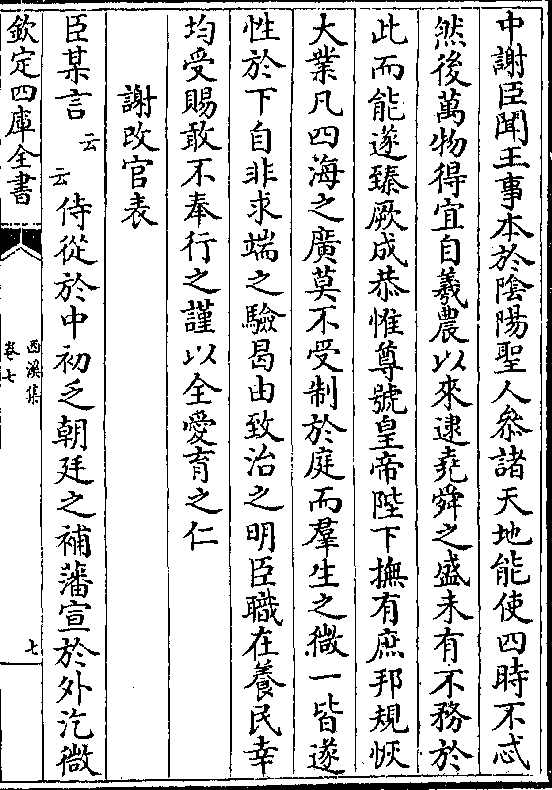 中謝臣聞王事本於陰陽聖人叅諸天地能使四時不忒
然後萬物得宜自羲農以來逮堯舜之盛未有不務於
此而能遂臻厥成恭惟尊號皇帝陛下撫有庶邦規恢
大業凡四海之廣莫不受制於庭而羣生之微一皆遂
性於下自非求端之驗曷由致治之明臣職在養民幸
均受賜敢不奉行之謹以全愛育之仁
謝改官表
臣某言云云侍從於中初乏朝廷之補藩宣於外汔微
欽定四庫全書
西溪集
卷七
七